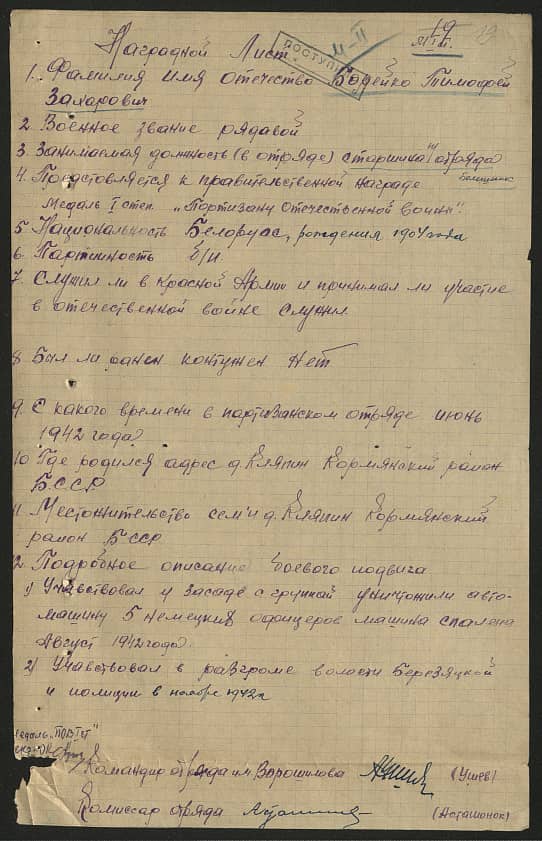 19
Наградной Лист
ПОСТУПИЛ
1. Фамилия имя отечество Бодейко Тимофей
Захарович
2. Военное звание рядавой
3. Занимаемая должность (в отряде) старшина отряда
4. Предстовляется к правительственной награде
Медаль I степ. „Партизану отечественной войны".
5 Национальность Белоруас, рождения 1904 года
6. Партийность б/п.
7. Служил ли в Красной Армии и принимал ли участие
в отечественной войне служил
8 Был ли ранен контужен нет
9. С какого времени в партизанском отряде июнь
1942 года
10 Где родился адрес д. Кляпин Кормянский район
БССР
11. Местожительство семи д. Кляпин Кормянский
район БССР
12. Подробное описание боевого подвига
1) Учавствовал у засаде с групкай уничтожили авто-
машину 5 немецких офицеров машина спалена
Август 1942 года.
2) Учавствовал в разгроме волости Березяцкой
и полиции в ноябре 1942 г.
медаль „ПОВ I ст"
Командир отряда им. Ворошилова (Ушев)
Комиссар отряда (Асташонок)